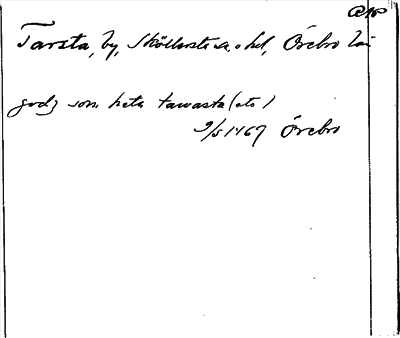 Tarsta, by, Sköllersta sn. o hd, Örebro län
godz som heta tawasta (etc)
9/5 1467 Örebro